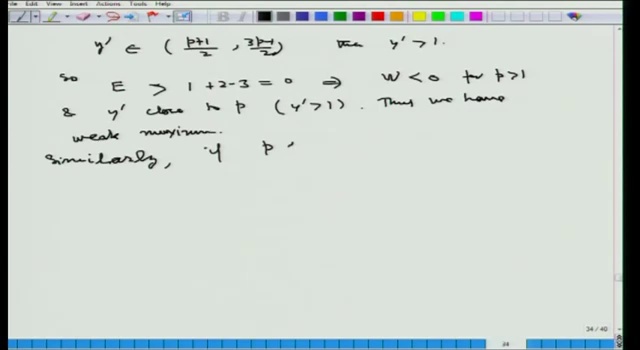 File Edit View Insert Actions Tools Help
y' ∈ ( p+1/2 , 3p-1/2 ) then y' > 1.
So E > 1 + 2 - 3 = 0 ⇒ W < 0 for p > 1
& y' close to p (y' > 1). Thus we have
weak maximum.
Similarly, if p
34 / 40
34